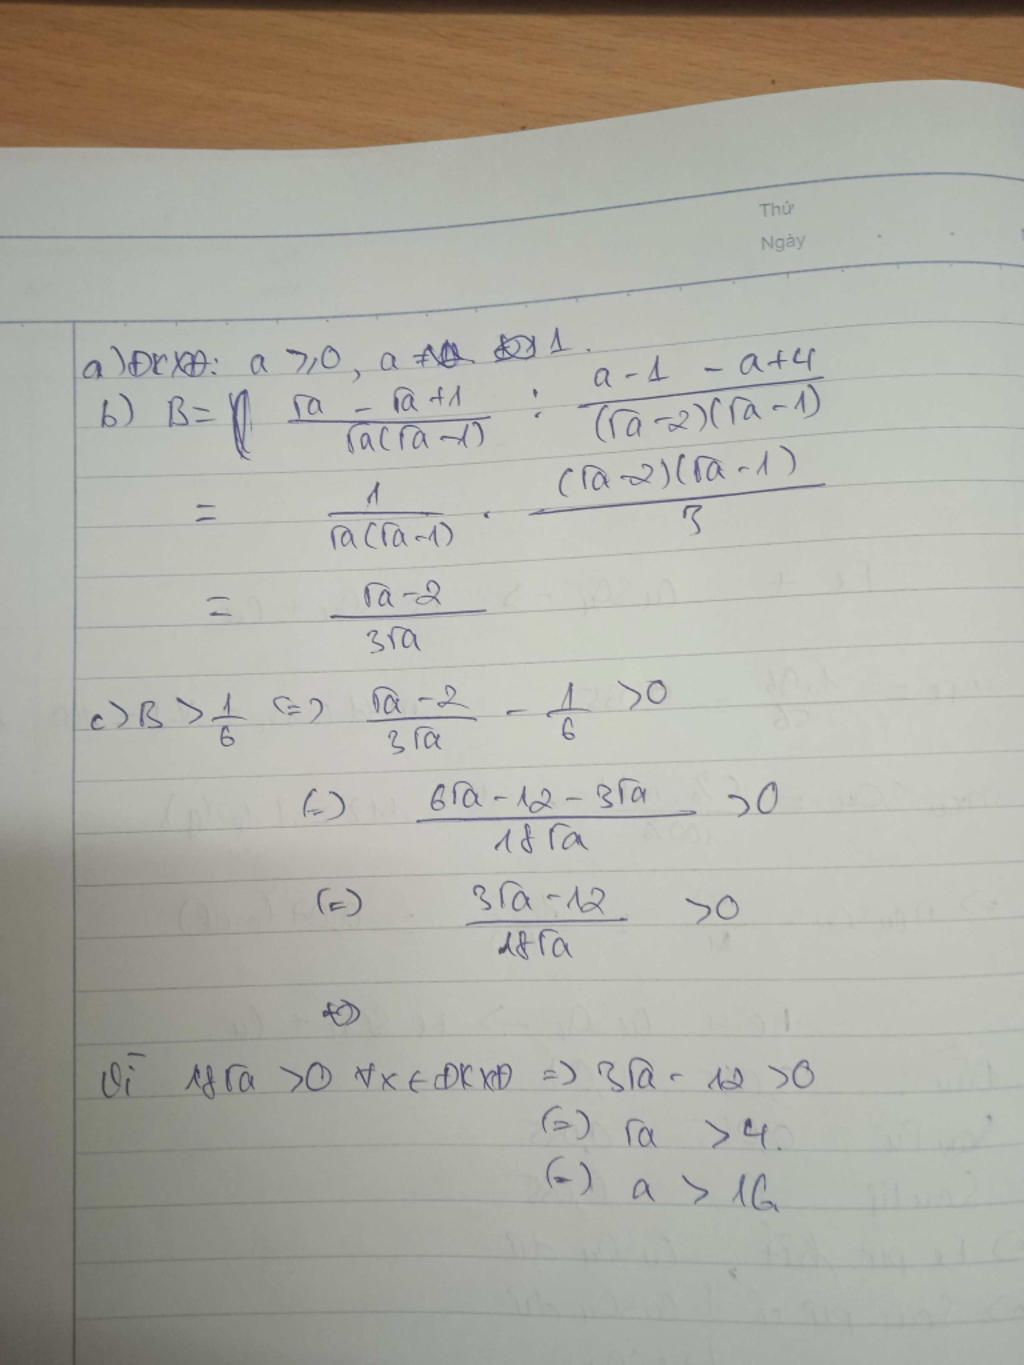 Thứ
Ngày
a) ĐKXĐ: a ⩾ 0, a ≠ 1.
b) B = (√a - √a + 1)/(√a(√a - 1)) : (a - 1 - a + 4)/((√a - 2)(√a - 1))
= 1/(√a(√a - 1)) . ((√a - 2)(√a - 1))/3
= (√a - 2)/(3√a)
c) B > 1/6 (=) (√a - 2)/(3√a) - 1/6 > 0
(=) (6√a - 12 - 3√a)/(18√a) > 0
(=) (3√a - 12)/(18√a) > 0
Vì 18√a > 0 ∀x ∈ ĐKXĐ => 3√a - 12 > 0
(=) √a > 4.
(=) a > 16